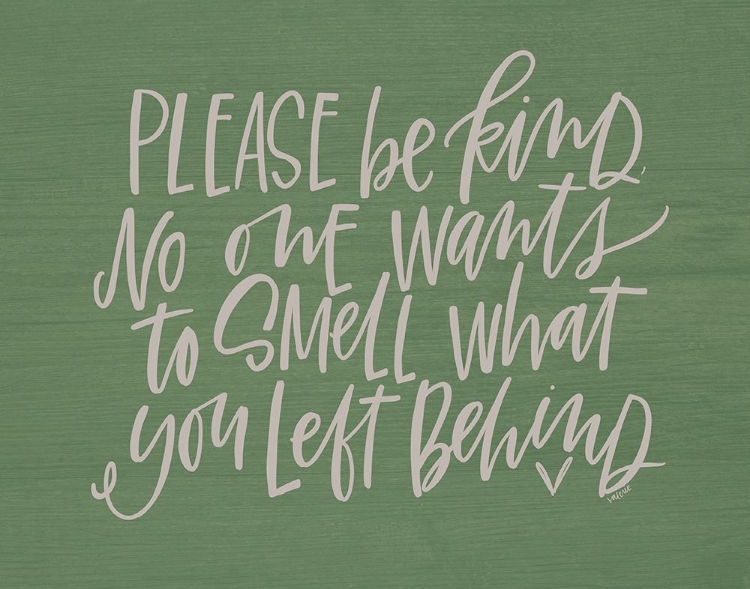 PLEASE be kind,
No one wants
to Smell what
you Left Behind
valerie